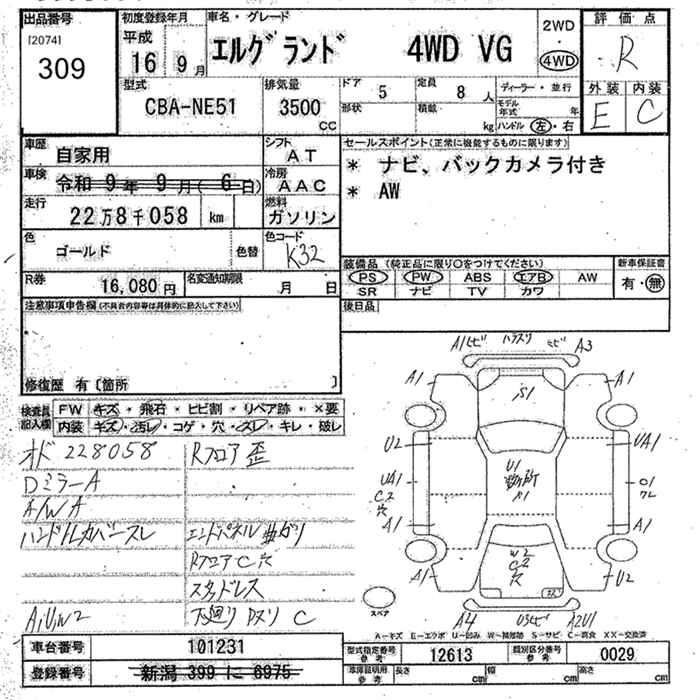 出品番号 初度登録年月 車名・グレード 2WD 評価点
[2074] 平成
309 16 9月 エルグランド 4WD VG 4WD R
型式 排気量 ドア 5 定員 8人 ディーラー・並行 外装 内装
CBA-NE51 3500CC 形状 積載 kg モデル年式 年 ハンドル 左・右 E C
車歴 自家用 シフト AT セールスポイント(正常に機能するものに限ります)
車検 令和9年9月(6日) 冷房 AAC * ナビ、バックカメラ付き
走行 22万8千058 km 燃料 ガソリン * AW
色 ゴールド 色替 色コード K32
装備品 (純正品に限り○をつけてください) 新車保証書
R券 16,080円 名変通知期限 月 日 PS PW ABS エアB AW 有・無
SR ナビ TV カワ
注意事項申告欄(不具合内容等は具体的に記入して下さい) 後日品
修復歴 有〔箇所 〕
検査員記入欄 FW キズ・飛石・ヒビ割・リペア跡・×要
内装 キズ・汚レ・コゲ・穴・スレ・キレ・破レ
オド 228058 Rフロア 歪
DミラーA
A/W A
ハンドルカバースレ エンドパネル曲がり
RフロアC穴
スタッドレス
A1U1W2 下廻りPヌリ C
A1ヒビ ハラスリ ヒビ A3
A1 S1 A1
U2 UA1
UA1 C2 穴 U1 A1 01 ワレ
A1 A1
A1 W2 C2 穴 U2
スペア A4 U3ヒビ A2U1
A-キズ E-エクボ U-凹み W-補修跡 S-サビ C-腐食 XX-交換済
車台番号 101231 型式指定番号 参考 12613 類別区分番号 参考 0029
登録番号 新潟 399 に 6975 車庫証明用 参考 長さ cm 幅 cm 高さ cm